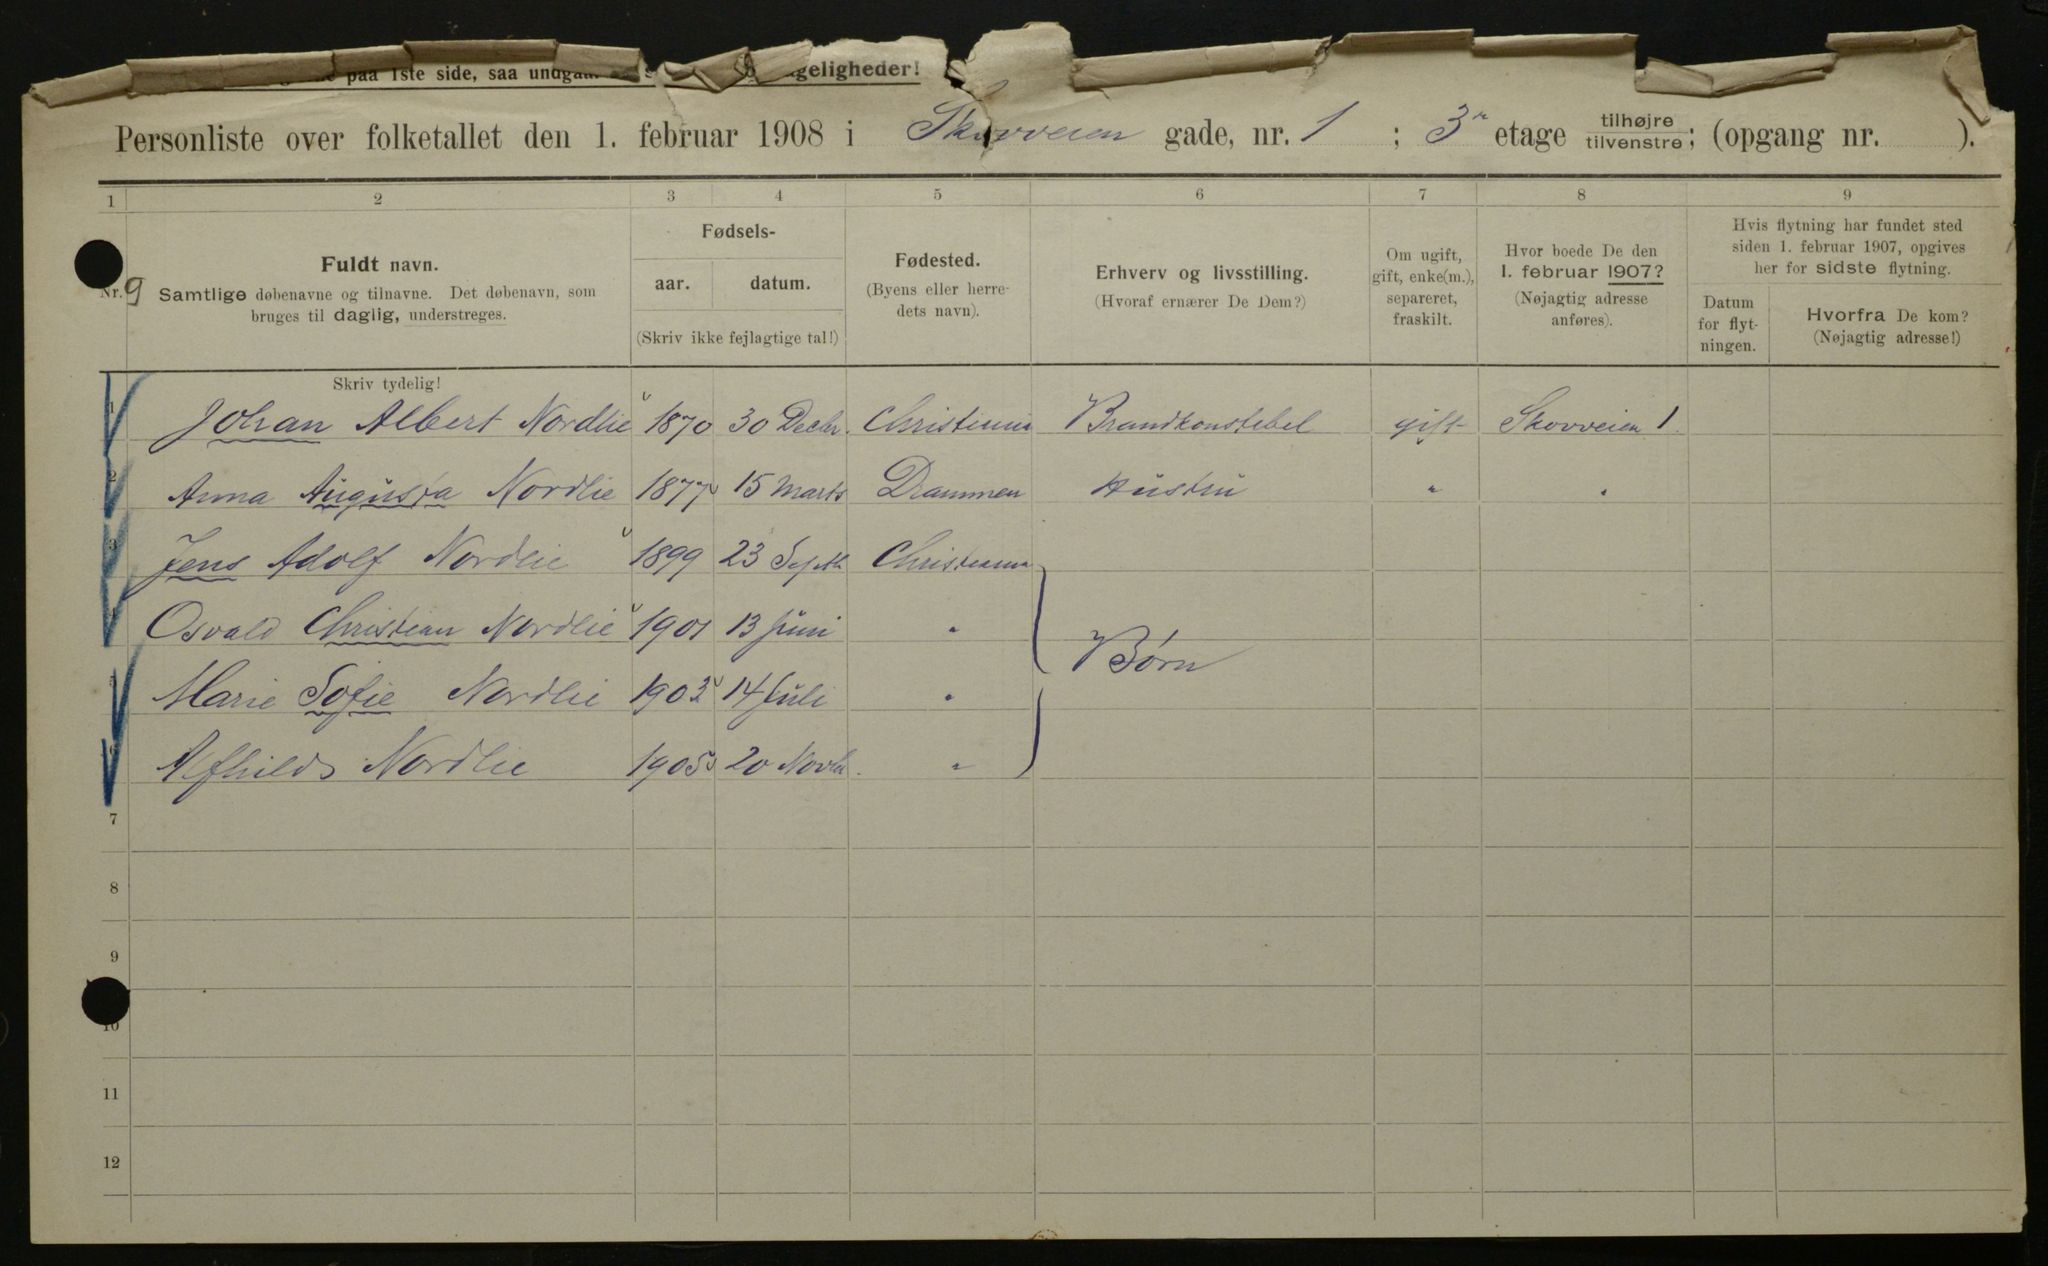 paa 1ste side, saa undgaa ageligheder!
Personliste over folketallet den 1. februar 1908 i Skovveien gade, nr. 1 ; 3 etage tilhøjre tilvenstre; (opgang nr. ).
1 2 3 4 5 6 7 8 9
Nr. 9
Fuldt navn.
Samtlige døbenavne og tilnavne. Det døbenavn, som
bruges til daglig, understreges.
Skriv tydelig!
Fødsels-
aar. datum.
(Skriv ikke fejlagtige tal!)
Fødested.
(Byens eller herre-
dets navn).
Erhverv og livsstilling.
(Hvoraf ernærer De Dem?)
Om ugift,
gift, enke(m.),
separeret,
fraskilt.
Hvor boede De den
1. februar 1907?
(Nøjagtig adresse
anføres).
Hvis flytning har fundet sted
siden 1. februar 1907, opgives
her for sidste flytning.
Datum
for flyt-
ningen.
Hvorfra De kom?
(Nøjagtig adresse!)
1 Johan Albert Nordlie 1870 30 Decbr. Christiania Brandkonstebel gift Skovveien 1.
2 Anna Augusta Nordlie 1877 15 Marts Drammen Hustru " "
3 Jens Adolf Nordlie 1899 23 Septb Christiania
4 Osvald Christian Nordlie 1901 13 Juni "
Børn
5 Marie Sofie Nordlie 1903 14 Juli "
6 Alfhild Nordlie 1905 20 Novbr. "
7
8
9
10
11
12